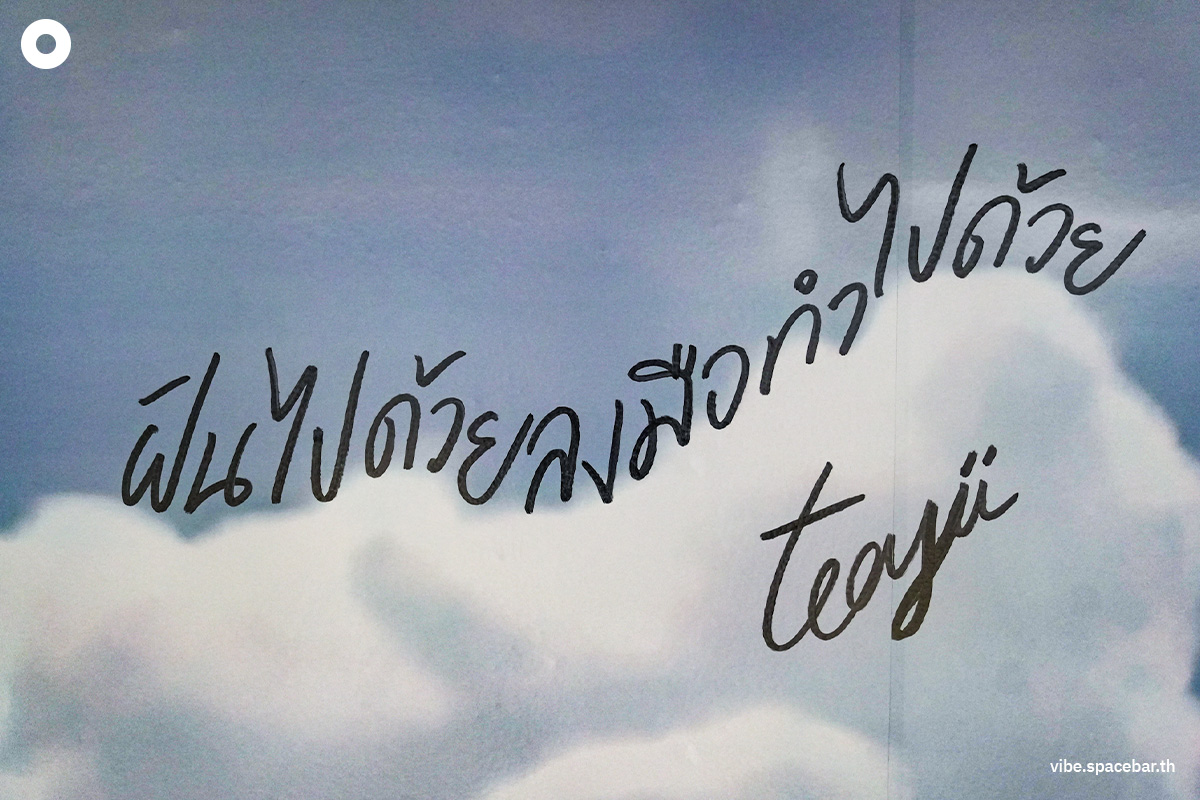 ฝันไปด้วยลงมือทำไปด้วย
teayii
vibe.spacebar.th